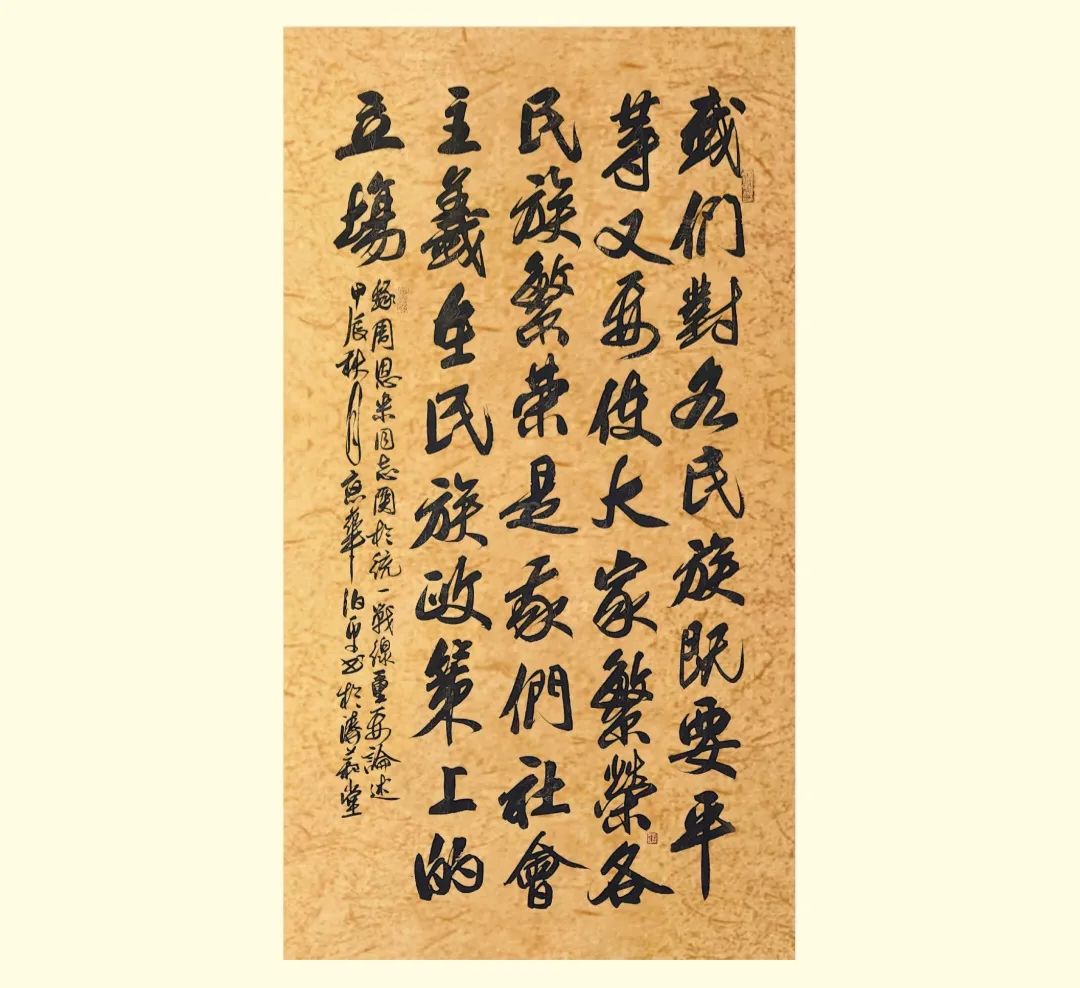 我們對各民族既要平
等又要使大家繁榮各
民族繁荣是我們社會
主義在民族政策上的
立場
錄周恩来同志関於統一戰線重要論述
甲辰秋月京華泊平书於濤荪堂